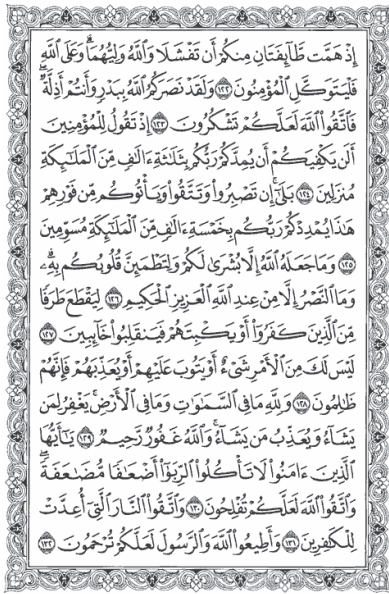 إِذْ هَمَّت طَّآئِفَتَانِ مِنكُمْ أَن تَفْشَلَا وَٱللَّهُ وَلِيُّهُمَاۗ وَعَلَى ٱللَّهِ
فَلْيَتَوَكَّلِ ٱلْمُؤْمِنُونَ ١٢٢ وَلَقَدْ نَصَرَكُمُ ٱللَّهُ بِبَدْرٍ وَأَنتُمْ أَذِلَّةٌۖ
فَٱتَّقُوا۟ ٱللَّهَ لَعَلَّكُمْ تَشْكُرُونَ ١٢٣ إِذْ تَقُولُ لِلْمُؤْمِنِينَ
أَلَن يَكْفِيَكُمْ أَن يُمِدَّكُمْ رَبُّكُم بِثَلَٰثَةِ ءَالَٰفٍ مِّنَ ٱلْمَلَٰٓئِكَةِ
مُنزَلِينَ ١٢٤ بَلَىٰٓۚ إِن تَصْبِرُوا۟ وَتَتَّقُوا۟ وَيَأْتُوكُم مِّن فَوْرِهِمْ
هَٰذَا يُمْدِدْكُمْ رَبُّكُم بِخَمْسَةِ ءَالَٰفٍ مِّنَ ٱلْمَلَٰٓئِكَةِ مُسَوِّمِينَ
١٢٥ وَمَا جَعَلَهُ ٱللَّهُ إِلَّا بُشْرَىٰ لَكُمْ وَلِتَطْمَئِنَّ قُلُوبُكُم بِهِۦۗ
وَمَا ٱلنَّصْرُ إِلَّا مِنْ عِندِ ٱللَّهِ ٱلْعَزِيزِ ٱلْحَكِيمِ ١٢٦ لِيَقْطَعَ طَرَفًا
مِّنَ ٱلَّذِينَ كَفَرُوٓا۟ أَوْ يَكْبِتَهُمْ فَيَنقَلِبُوا۟ خَآئِبِينَ ١٢٧
لَيْسَ لَكَ مِنَ ٱلْأَمْرِ شَىْءٌ أَوْ يَتُوبَ عَلَيْهِمْ أَوْ يُعَذِّبَهُمْ فَإِنَّهُمْ
ظَٰلِمُونَ ١٢٨ وَلِلَّهِ مَا فِى ٱلسَّمَٰوَٰتِ وَمَا فِى ٱلْأَرْضِۚ يَغْفِرُ لِمَن
يَشَآءُ وَيُعَذِّبُ مَن يَشَآءُۚ وَٱللَّهُ غَفُورٌ رَّحِيمٌ ١٢٩ يَٰٓأَيُّهَا
ٱلَّذِينَ ءَامَنُوا۟ لَا تَأْكُلُوا۟ ٱلرِّبَوٰٓا۟ أَضْعَٰفًا مُّضَٰعَفَةًۖ
وَٱتَّقُوا۟ ٱللَّهَ لَعَلَّكُمْ تُفْلِحُونَ ١٣٠ وَٱتَّقُوا۟ ٱلنَّارَ ٱلَّتِىٓ أُعِدَّتْ
لِلْكَٰفِرِينَ ١٣١ وَأَطِيعُوا۟ ٱللَّهَ وَٱلرَّسُولَ لَعَلَّكُمْ تُرْحَمُونَ ١٣٢